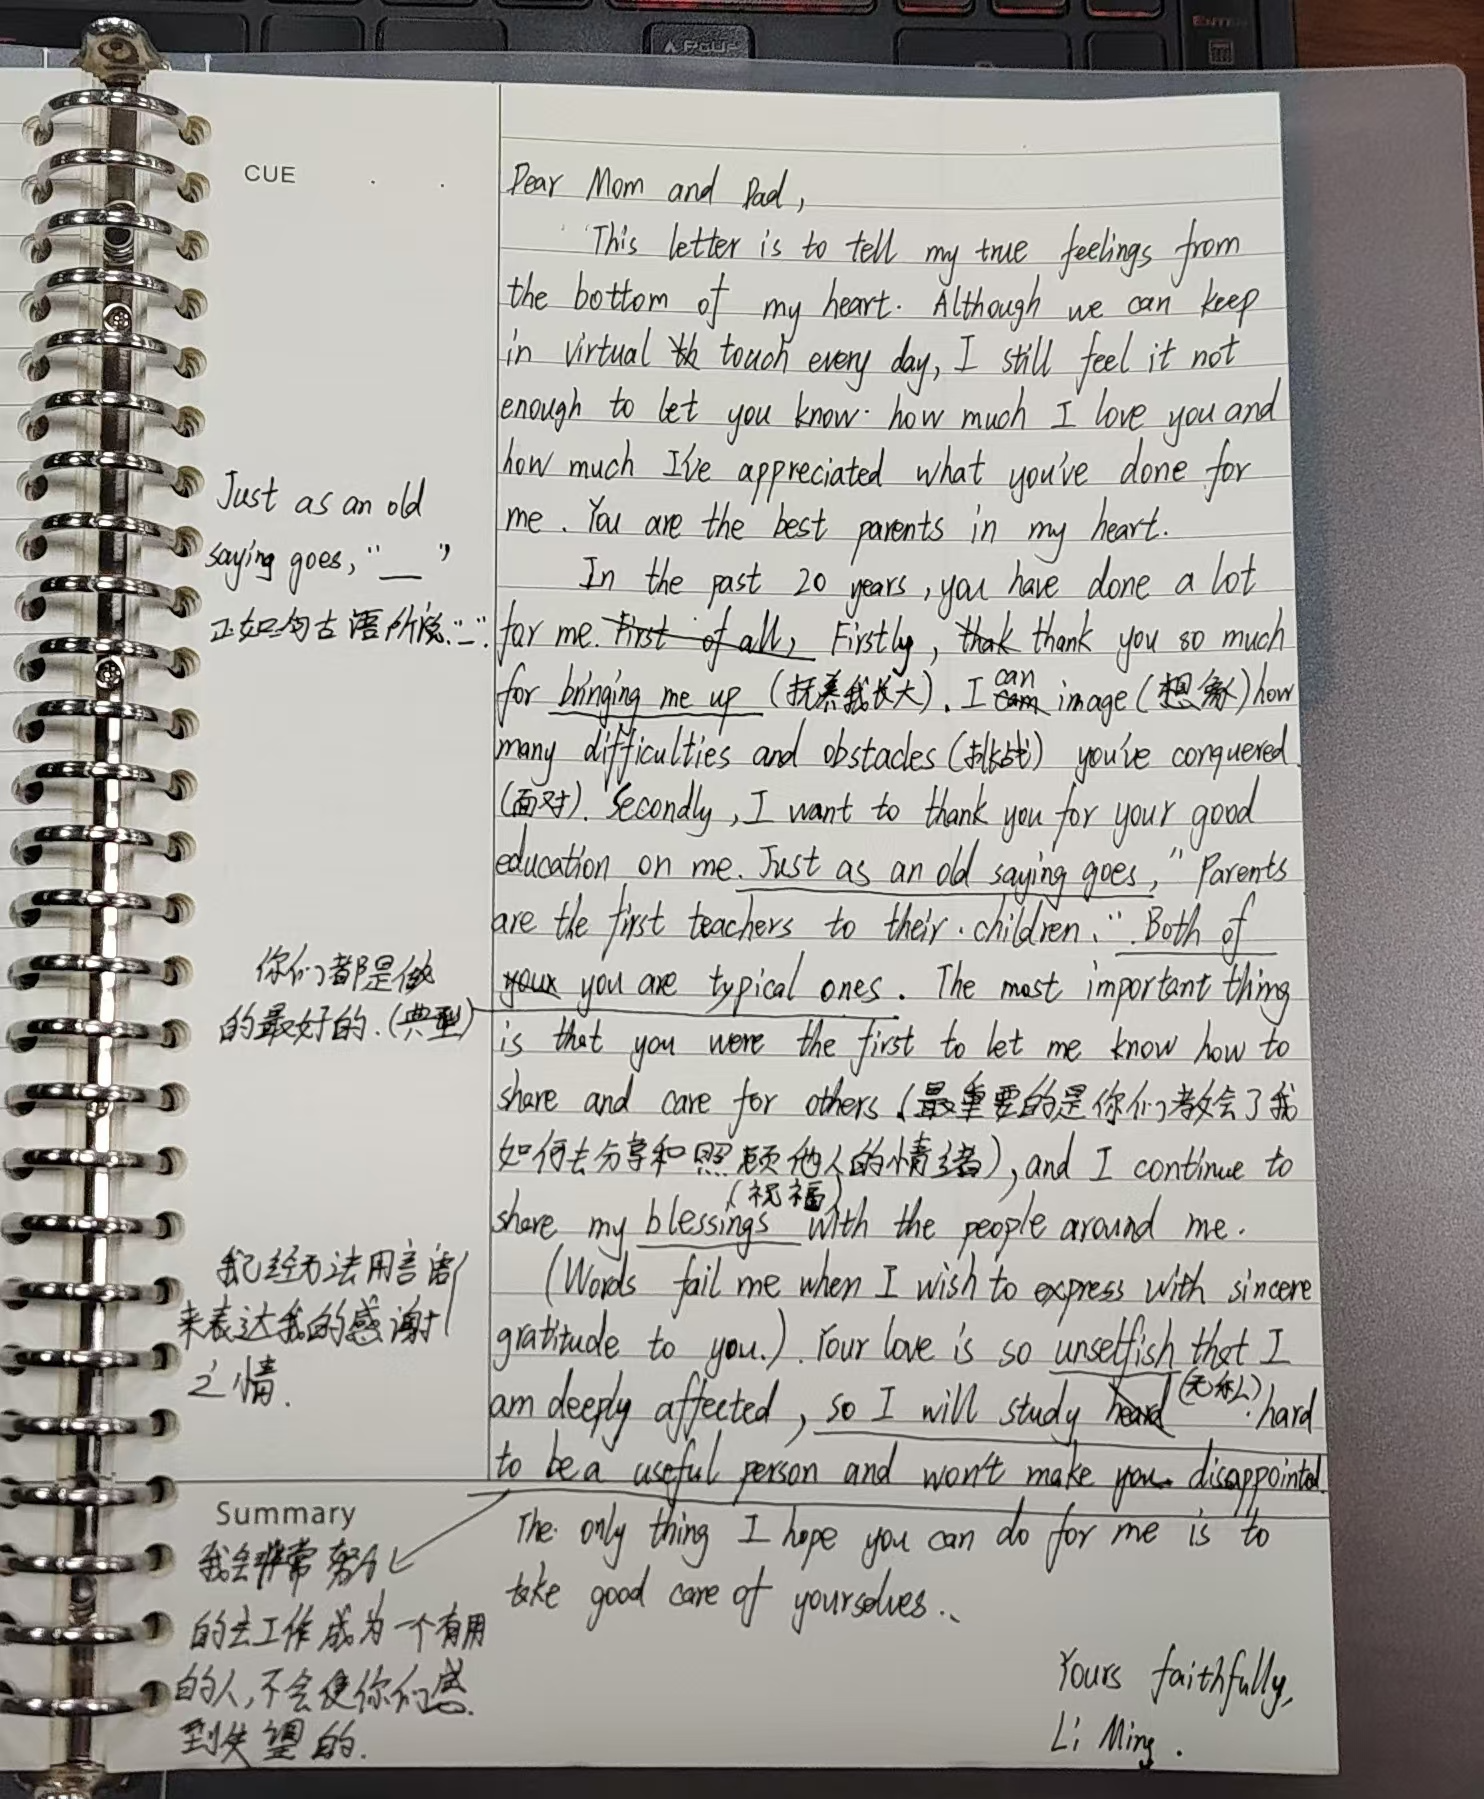 PgUp
ENTER
CUE
Dear Mom and Dad,
This letter is to tell my true feelings from
the bottom of my heart. Although we can keep
in virtual th touch every day, I still feel it not
enough to let you know how much I love you and
how much I've appreciated what you've done for
me. You are the best parents in my heart.
In the past 20 years, you have done a lot
for me. First of all, Firstly, thak thank you so much
for bringing me up (抚养我长大). I cam can image (想象) how
many difficulties and obstacles (挑战) you've conquered
(面对). Secondly, I want to thank you for your good
education on me. Just as an old saying goes, "Parents
are the first teachers to their children." Both of
your you are typical ones. The most important thing
is that you were the first to let me know how to
share and care for others (最重要的是你们教会了我
如何去分享和照顾他人的情绪), and I continue to
share my blessings (祝福) with the people around me.
(Words fail me when I wish to express with sincere
gratitude to you.). Your love is so unselfish that I
am deeply affected, so I will study heard (无私) hard
to be a useful person and won't make you disappointed.
The only thing I hope you can do for me is to
take good care of yourselves.
Yours faithfully,
Li Ming.
Just as an old
saying goes, "__"
正如句古语所说"_".
你们都是做
的最好的.(典型)
我已经无法用言语
来表达我的感谢
之情.
Summary
我会非常努力
的去工作成为一个有用
的人,不会使你们感
到失望的.